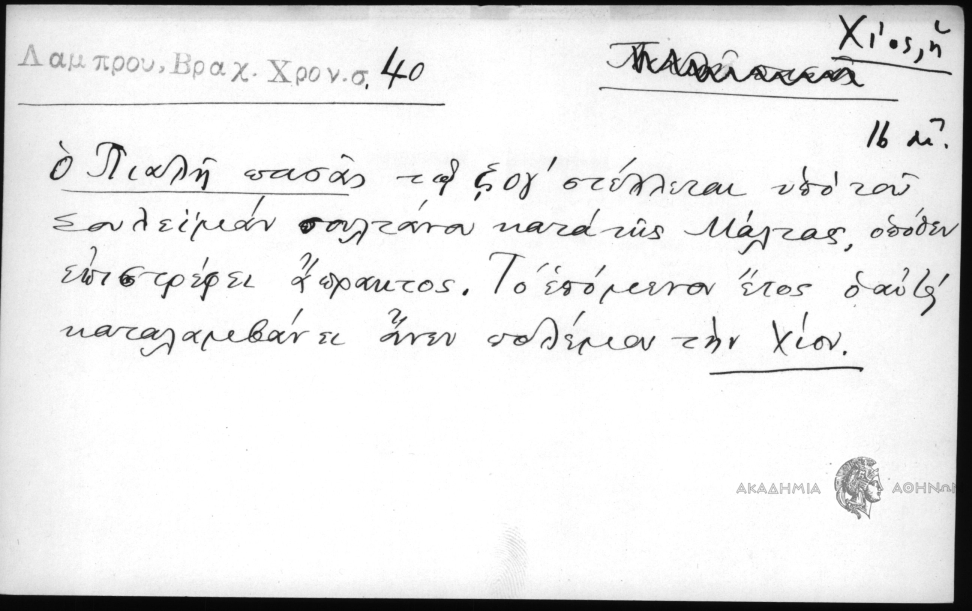 Χίος, ἡ
Λαμπρου, Βραχ. Χρον. σ. 40
16 αἰ.
ὁ Πιαλῆ πασᾶς τῷ ζογ´ στέλλεται ὑπὸ τοῦ
Σουλεϊμὰν σουλτάνου κατὰ τῆς Μάλτας, ὁπόθεν
ἐπιστρέφει ἄπρακτος. Τὸ ἑπόμενον ἔτος ὁ αὐτὸς
καταλαμβάνει ἄνευ πολέμου τὴν Χίον.
ΑΚΑΔΗΜΙΑ ΑΘΗΝΩΝ